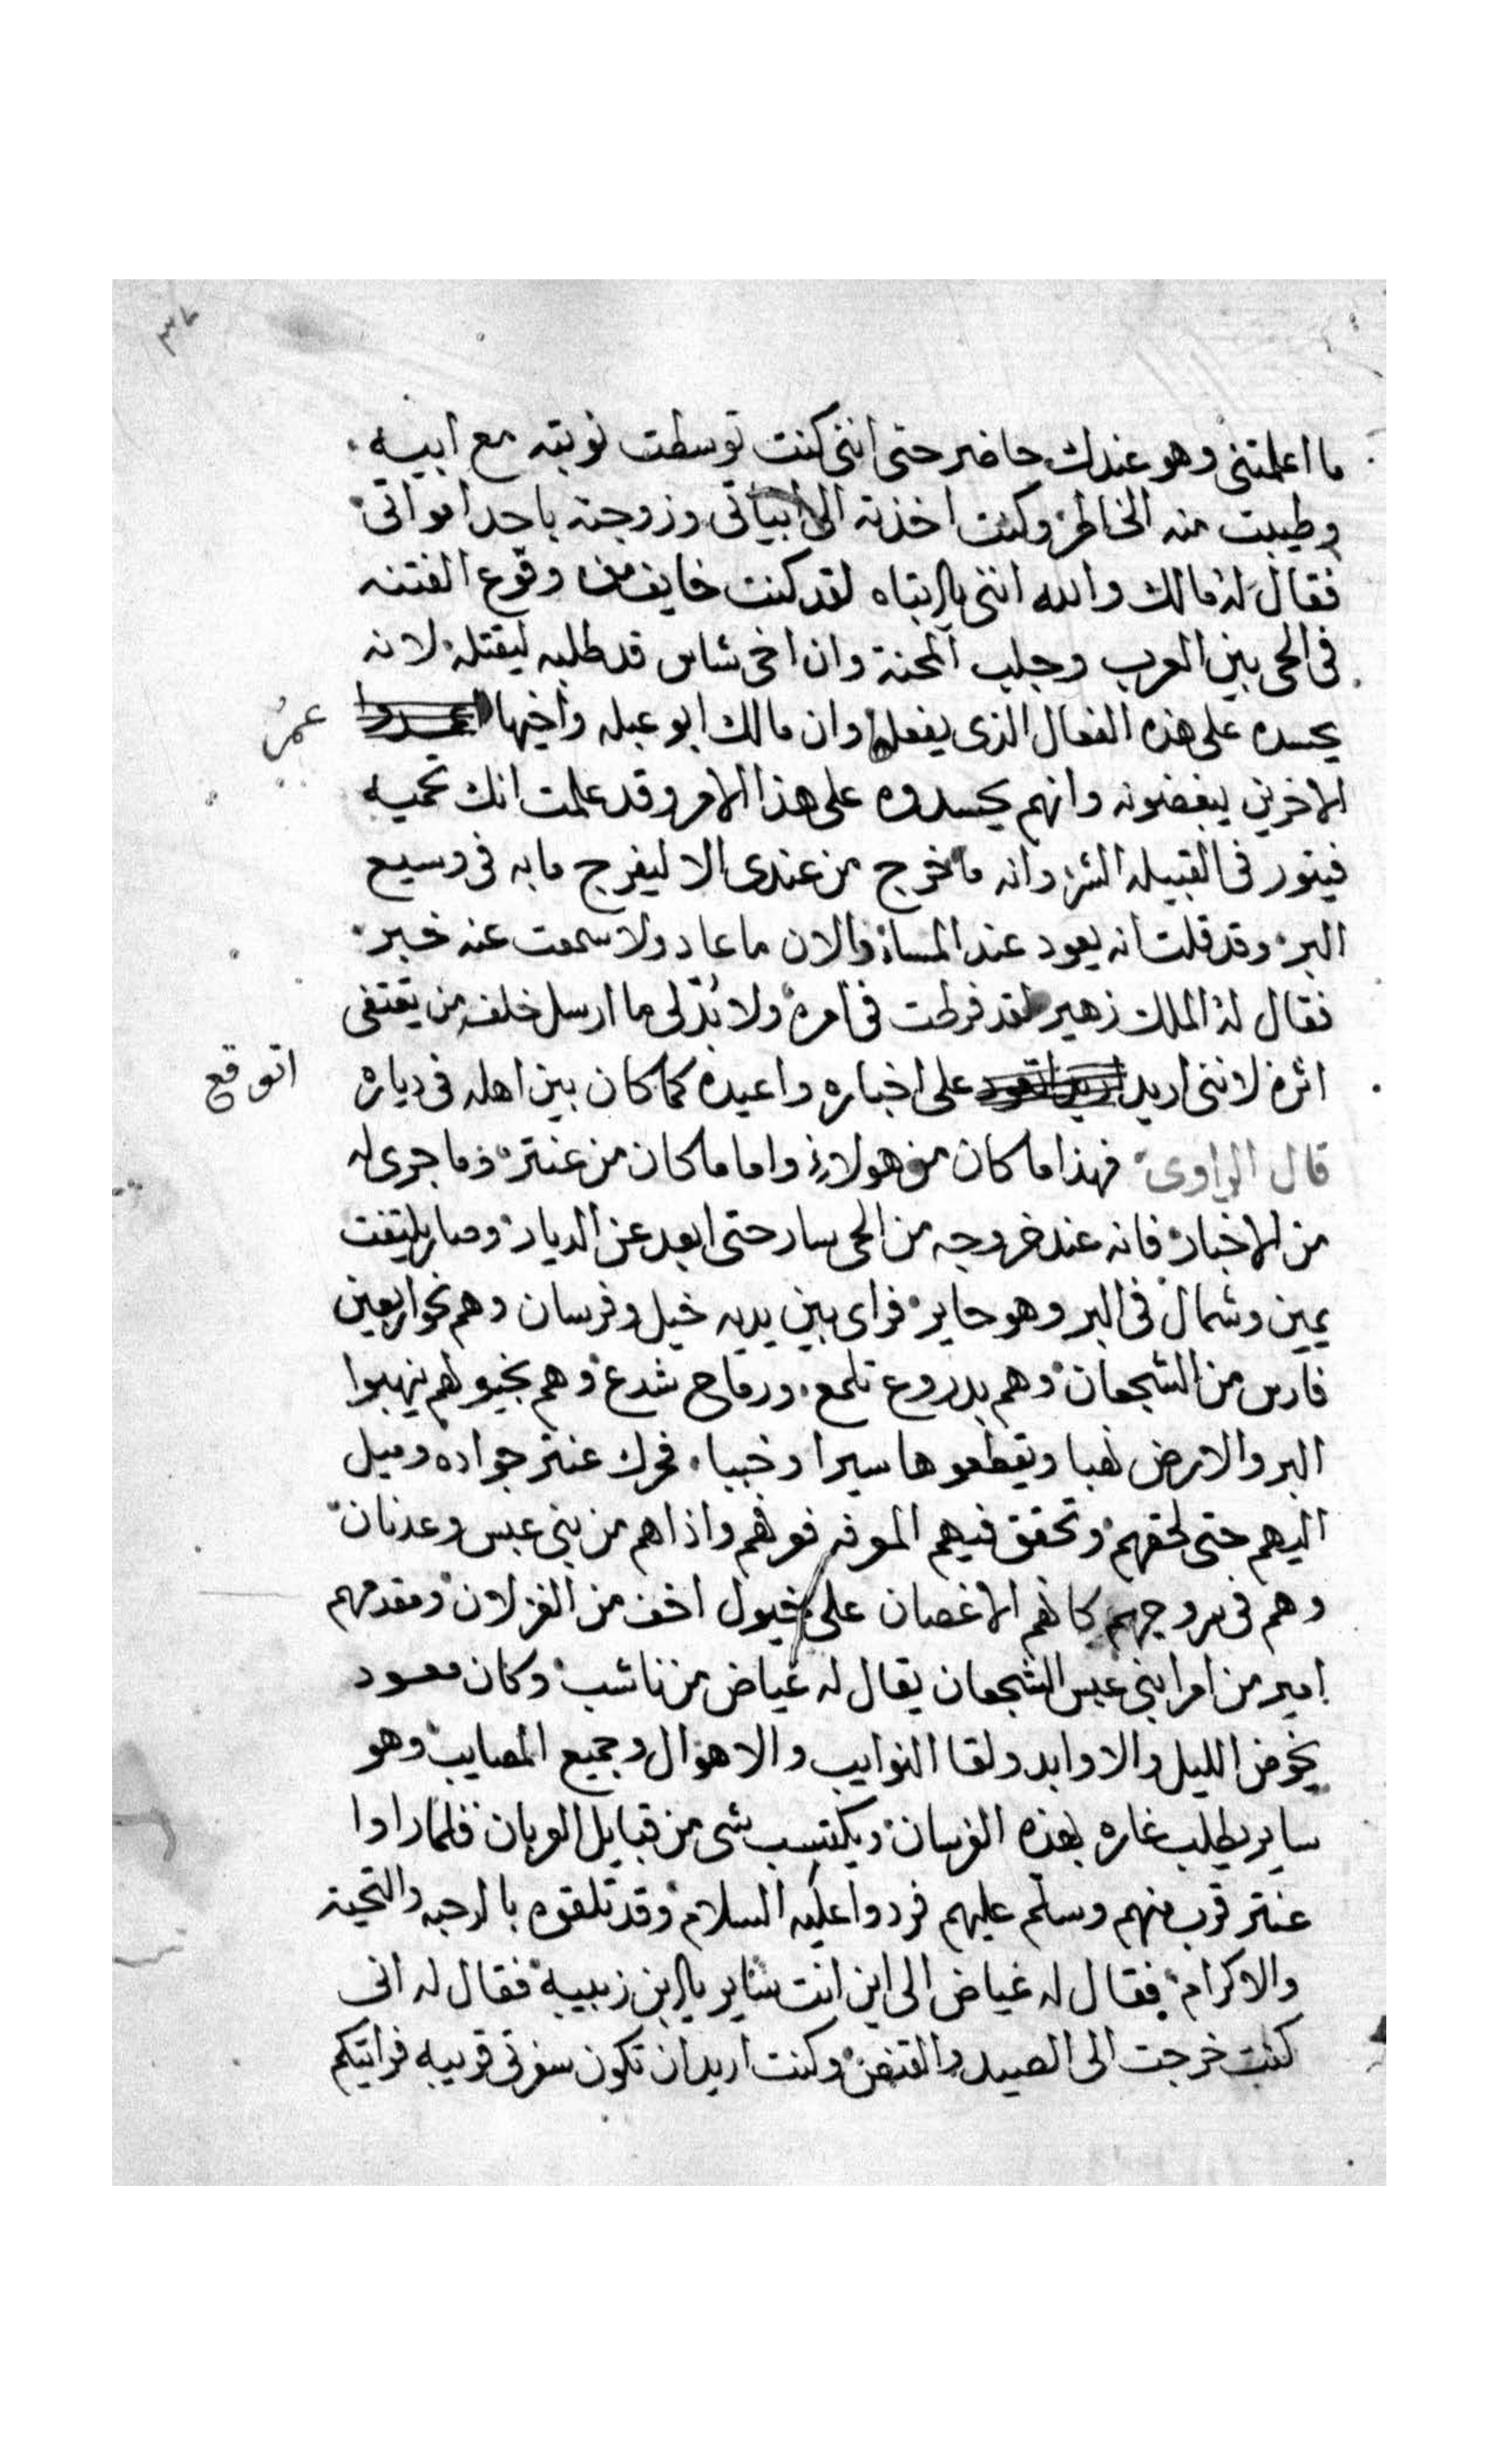 ما اعلمتنى وهو عندك حاضر حتى اننى كنت توسطت نوبته مع ابيه
وطيبت منه الخاطر وكنت اخذته الى ابياتى وزوجته باحد امواتى
فقال له مالك والله اننى يا ابتاه لقد كنت خايف من وقوع الفتنه
فى الحى بين العرب وجلب المحنة وان اخى شاس قد طلبه ليقتله لانه
يحسده على هذه الفعال الذى يفعلها وان مالك ابو عبله واخيها عمرُ
الاخرين يبغضونه وانهم يحسدوه على هذا الامر وقد علمت انك تحميه
فيثور فى القبيله الشر وانه ما خرج من عندى الا ليفرج ما به فى وسيع
البر وقد قلت انه يعود عند المساء فالان ما عاد ولا سمعت عنه خبر
فقال له الملك زهير لقد فرطت فى امره ولا بُدّ لى ما ارسل خلفه من يقتفى
اثره لاننى اريد اتوقع على اخباره واعيده كما كان بين اهله فى دياره
قال الراوى فهذا ما كان من هولاء واما ما كان من عنتر وما جرى له
من الاخبار فانه عند خروجه من الحى سار حتى ابعد عن الديار وصار يلتفت
يمين وشمال فى البر وهو حاير فراى بين يديه خيل وفرسان وهم نحو اربعين
فارس من الشجعان وهم بدروع تلمع ورماح شدع وهم بخيولهم ينهبوا
البر والارض نهبا ويقطعوها سيرا وخببا فحرك عنتر جواده وميل
اليهم حتى لحقهم وتحقق فيهم المعرفه فعرفهم واذا هم من بنى عبس وعدنان
وهم فى سروجهم كانهم الاغصان على خيول اخف من الغزلان ومقدمهم
امير من امرا بنى عبس الشجعان يقال له غياض من ناشب وكان معود
بخوض الليل والاوابد ولقا النوايب والاهوال وجميع المصايب وهو
ساير يطلب غاره بهذه الفرسان ويكتسب شى من قبايل العربان فلما راوا
عنتر قرب منهم وسلم عليهم فردوا عليه السلام وقد تلقوه بالرحبه والتحية
والاكرام فقال له غياض الى اين انت ساير يا ابن زبيبة فقال له انى
كنت خرجت الى الصيد والقنص وكنت اريد ان تكون سفرتى قريبه فرايتكم